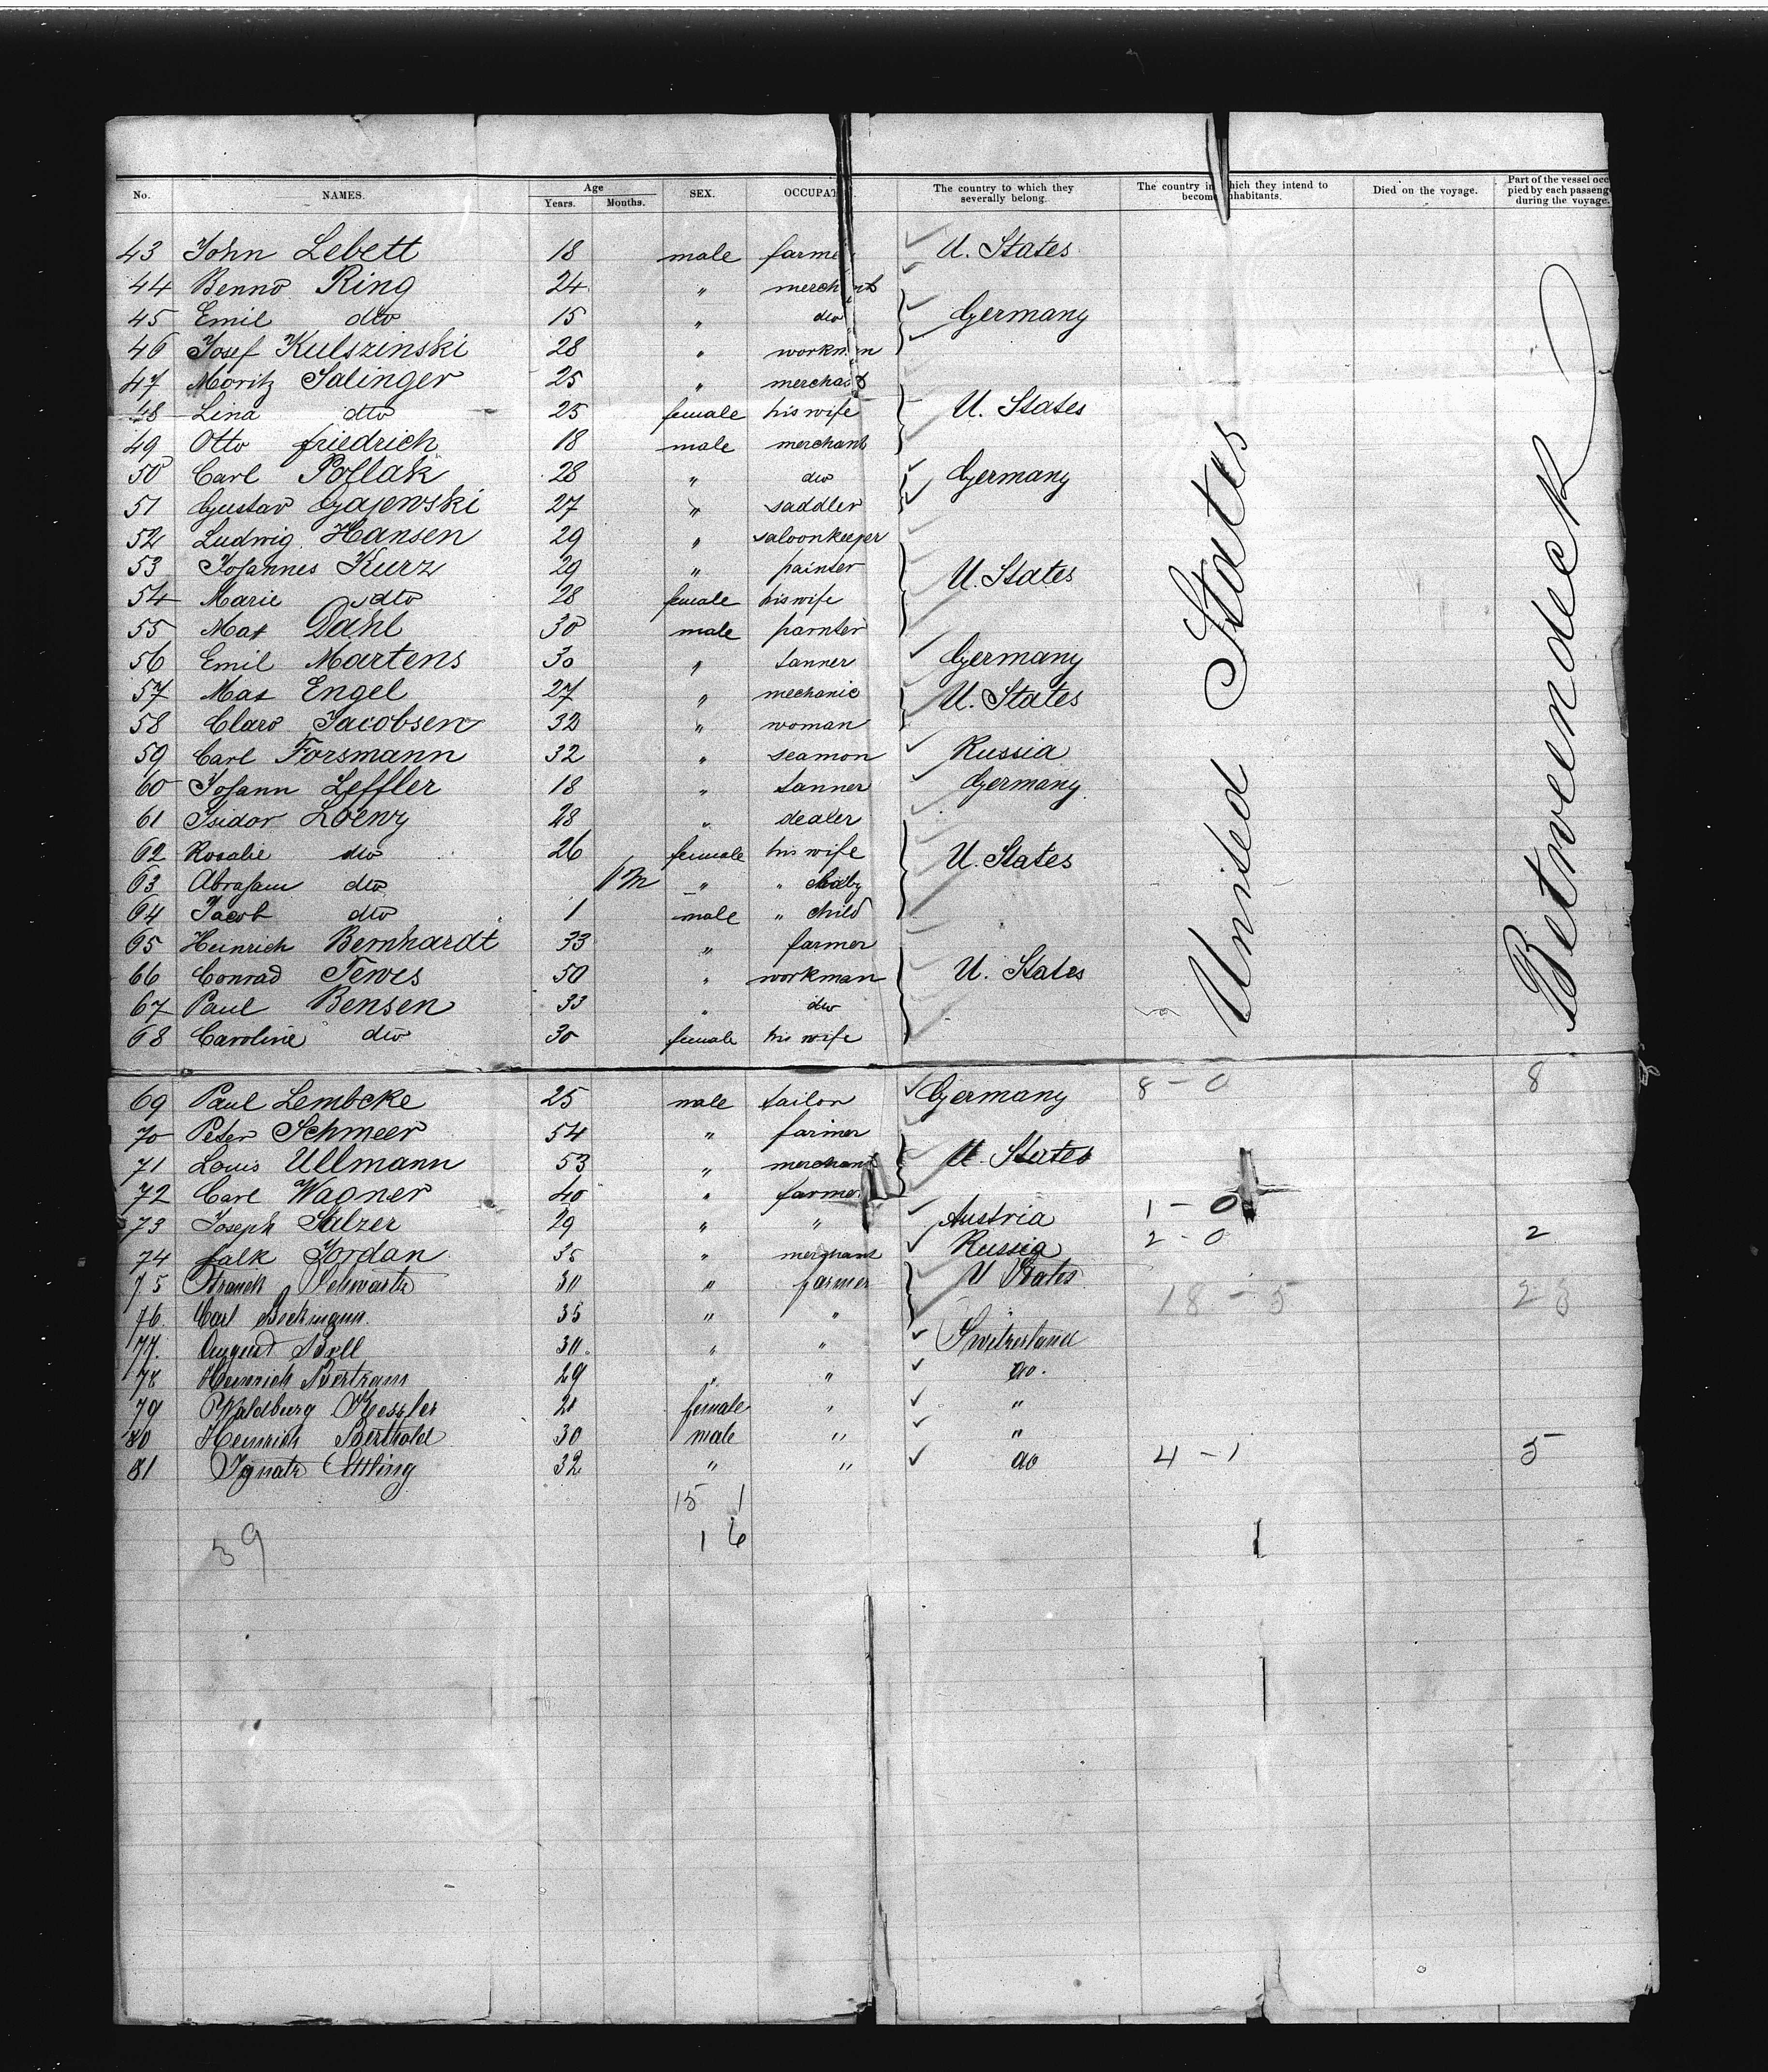 No. NAMES. Age Years. Months. SEX. OCCUPAT The country to which they severally belong. The country in which they intend to become inhabitants. Died on the voyage. Part of the vessel occupied by each passenger during the voyage.
43 John Lebett 18 male farme U. States
44 Benno Ring 24 " merchant
45 Emil dto 15 " dto Germany
46 Josef Kulszinski 28 " workman
47 Moritz Salinger 25 " merchant
48 Lina dto 25 female his wife U. States
49 Otto Friedrich 18 male merchant
50 Carl Pollak 28 " dto Germany
51 Gustav Gajewski 27 " saddler
52 Ludwig Hansen 29 " saloonkeeper
53 Johannes Kurz 29 " painter U. States
54 Marie dto 28 female his wife
55 Max Dahl 30 male painter
56 Emil Martens 30 " tanner Germany
57 Max Engel 27 " mechanic U. States
58 Claro Jacobsen 32 " woman
59 Carl Forsmann 32 " seamon Russia
60 Johann Leffler 18 " tanner Germany
61 Isidor Loewy 28 " dealer
62 Rosalie dto 26 female his wife U. States
63 Abraham dto 1 M " " baby
64 Jacob dto 1 male " child
65 Heinrich Bernhardt 33 " farmer
66 Conrad Tewes 50 " workman U. States
67 Paul Bensen 33 " dto
68 Caroline dto 30 female his wife
United States
Betweendeck
69 Paul Lembcke 25 male tailor Germany 8-0 8
70 Peter Schmeer 54 " farmer
71 Louis Ullmann 53 " merchant U. States
72 Carl Wagner 40 " farmer
73 Joseph Salzer 29 " " Austria 1-0
74 Falk Jordan 35 " merchant Russia 2-0 2
75 Schwartz 30 " farmer U States
76 Carl Beckmann 35 " " 18-5 23
77. August Boll 30. " " Switzerland
78 Heinrich Bertram 29 " " do.
79 Waldburg Kessler 21 female " "
80 Heinrich Berthold 30 male " "
81 Ignatz Ettling 32 " " do 4-1 5
15 1
16
39